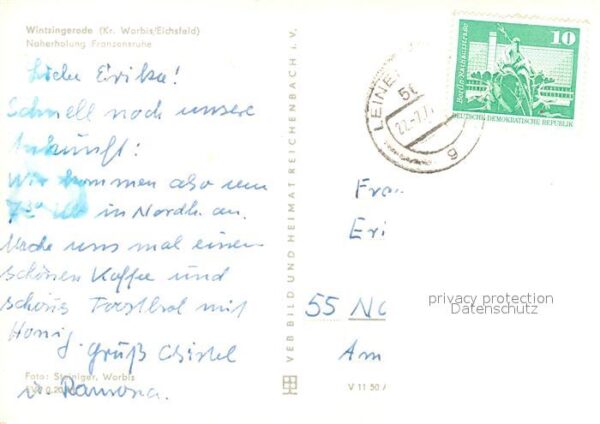 Wintzingerode (Kr. Worbis/Eichsfeld)
Naherholung Franzensruhe
Liebe Erika!
Schnell noch unsere
Ankunft:
Wir kommen also um
7³⁰ Uhr in Nordh. an.
Mache uns mal einen
schönen Kaffee und
schöns Toastbrot mit
Honig.
Gruß Christel
u. Ramona.
Foto: Steiniger, Worbis
VEB BILD UND HEIMAT REICHENBACH i. V.
10
Berlin Rathausstraße
DEUTSCHE DEMOKRATISCHE REPUBLIK
LEINE
22.-7.7
g
Frau
Eri
55 No
Am
V 11 50 /
privacy protection
Datenschutz